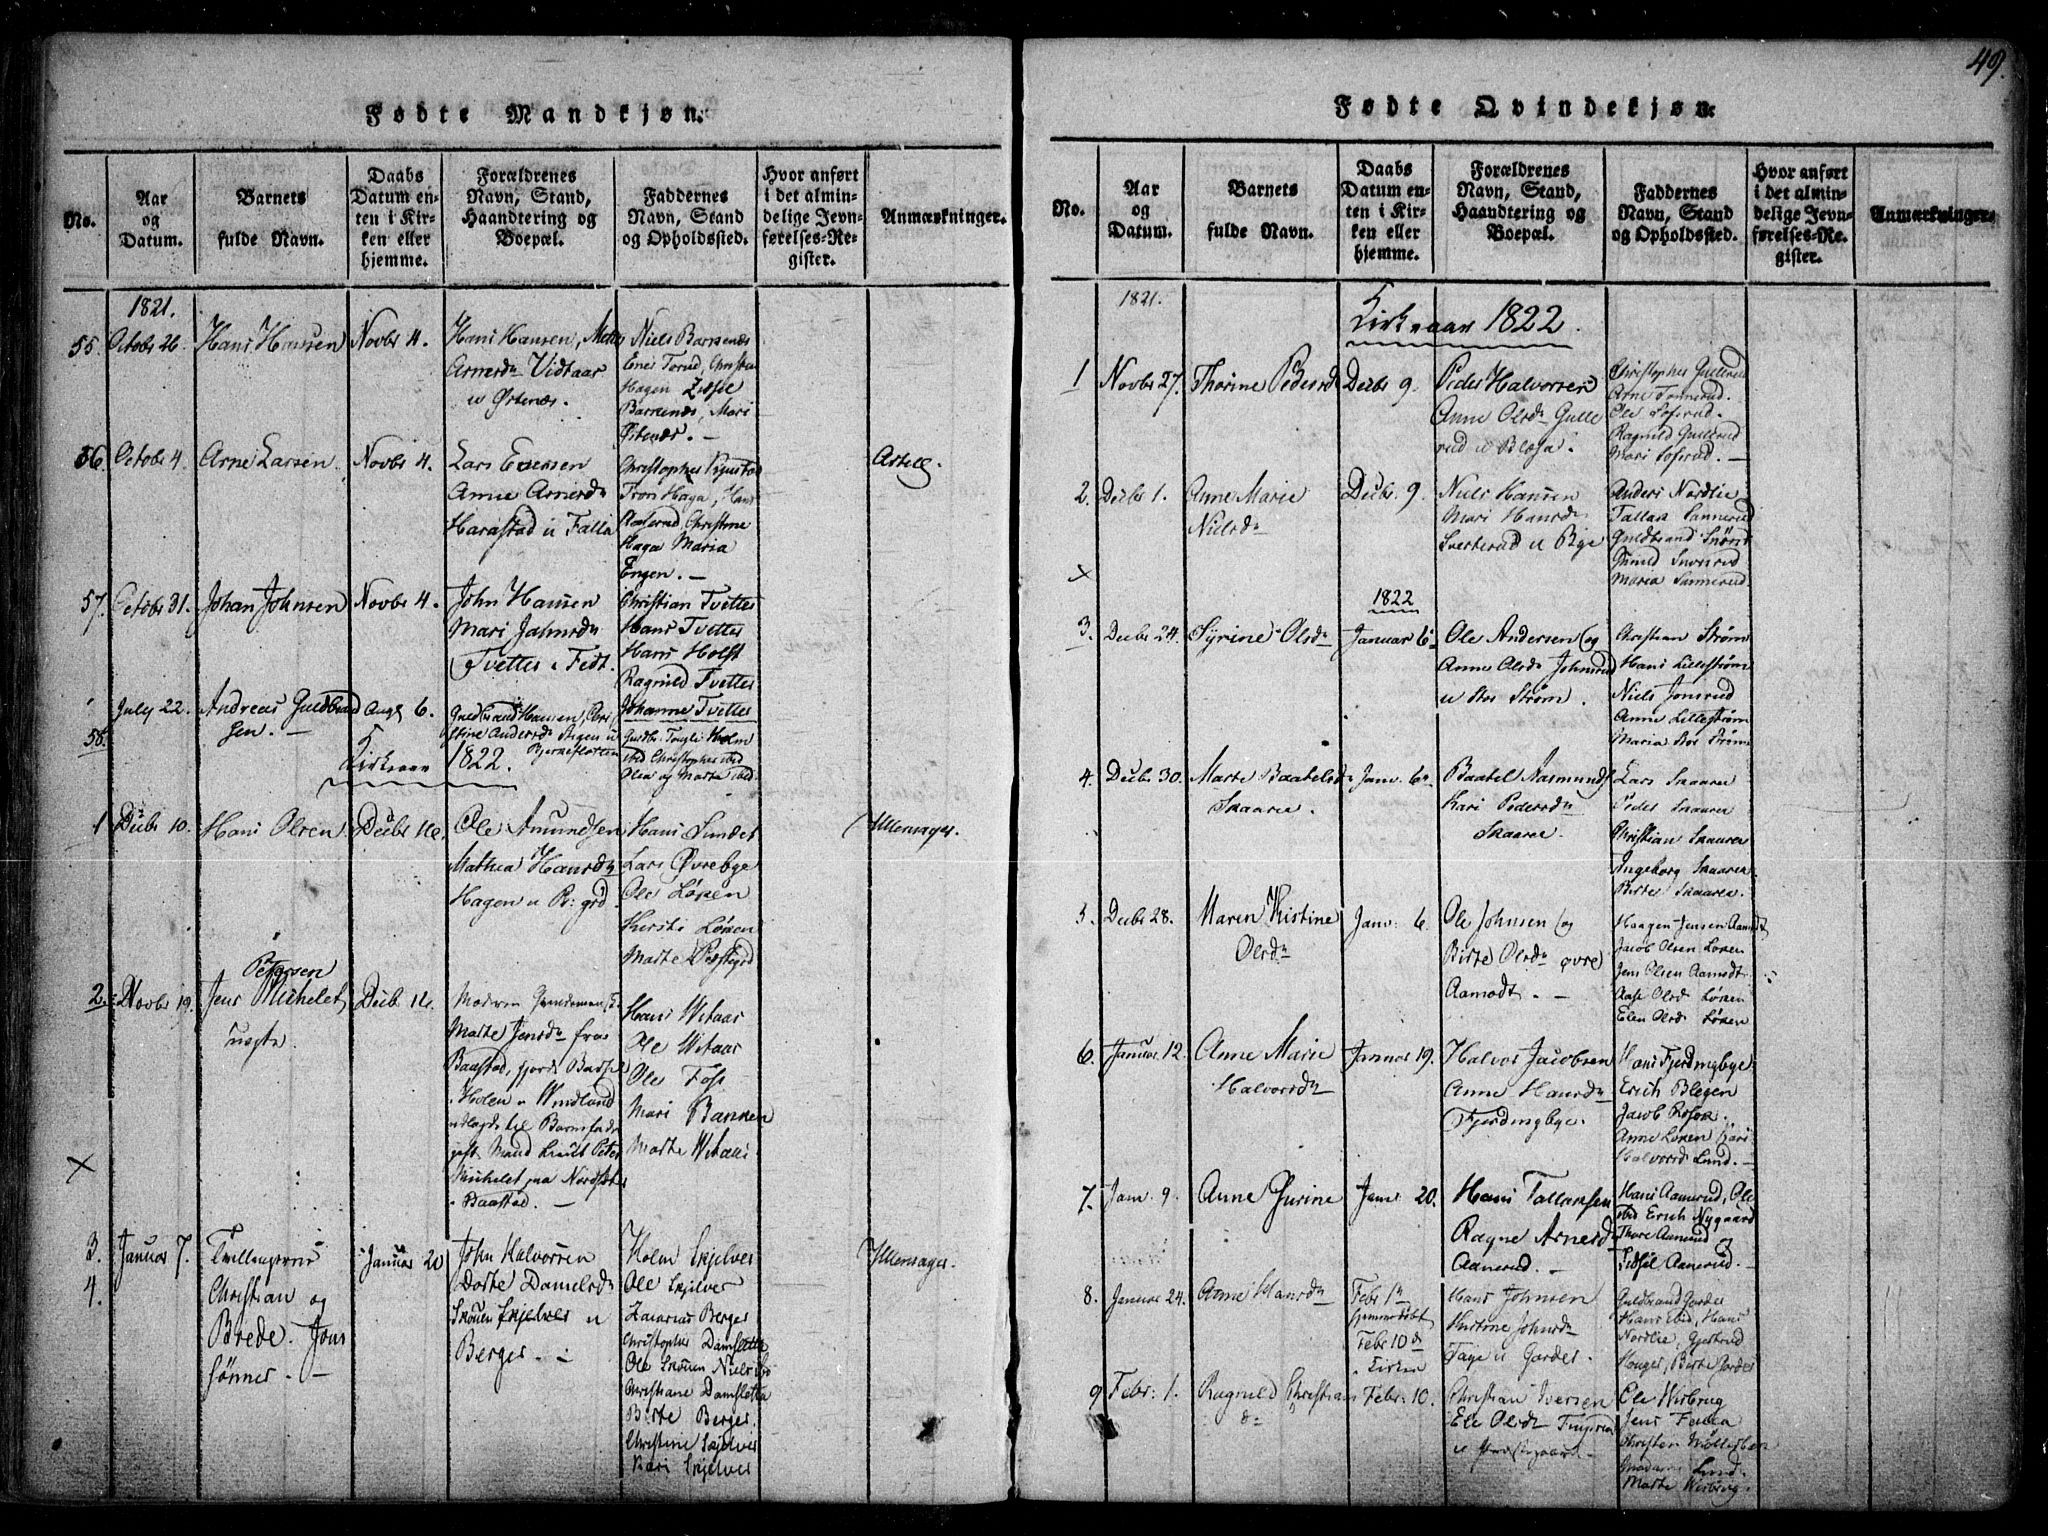 49.
Fødte Mandkjøn.
No.
Aar
og
Datum.
Barnets
fulde Navn.
Daabs
Datum en-
ten i Kir-
ken eller
hjemme.
Forældrenes
Navn, Stand,
Haandtering og
Boepæl.
Faddernes
Navn, Stand
og Opholdssted.
Hvor anført
i det almin-
delige Jevn-
førelses-Re-
gister.
Anmærkninger.
1821.
55. Octobr 26. Hans Hansen Novbr 4.
Hans Hansen,
Vidtaar
u Østenæs.
Niels
Hagen
Mari
Østenæs. —
56. Octobr 4. Arne Larsen. Novbr 4.
Lars
Anne Arnesdn
Harastad u Falla
Christopher
Tron Haga, Hans
Christine
Haga Maria
Engen. —
57. Octobr 31. Johan Johnsen Novbr 4.
John Hansen
Mari
Tvetter Fedt.
Christian Tvetter
Hans Tvetter
Hans Holst
Ragnild Tvetter
Johanne Tvetter
58. July 22. Andreas Guldbrand
sen. —
Aug 6.
Guldbrand Hansen,
Andersdn
Holm
ibid Christopher ibid
Olea og Marte ibid.
Kirkeaar 1822.
1 Decbr 10. Hans Olsen Decbr 16.
Ole Amundsen
Mathea Hansdn
Hagen u
Hans Sundet
Lars Øvrebye
Ole Løken
Kirsti Løken
Marte
Ullensager.
2. Novbr 19. Jens Michelet
Petersen
uægte.
Decb. 16.
Moderen
Marte Jensdn fra
Baastad,
Holen u
udlagde til Barnefader
gift Mand Lieut Peter
Michelet paa
Baastad. —
Hans Witaar
Ole Witaar
Ole Foss
Mari Bakken
Marte Witaar
3.
4.
Januar 7. Tvillingerne
Christian og
Brede. Jons
sønner. —
Januar 20
John Halvorsen
Dorte Danielsdn
Skouen Skjelver u
Berger. —
Holm Skjelver
Ole Skjelver
Zacarias Berger
Christopher Damsletta
Ole Skouen Niels ibid
Christiane Damsletta
Birte Berger.
Christine Skjelver
Kari Skjelver
Ullensager.
Fødte Qvindekjøn.
No.
Aar
og
Datum.
Barnets
fulde Navn.
Daabs
Datum en-
ten i Kir-
ken eller
hjemme.
Forældrenes
Navn, Stand,
Haandtering og
Boepæl.
Faddernes
Navn, Stand
og Opholdssted.
Hvor anført
i det almin-
delige Jevn-
førelses-Re-
gister.
Anmærkninger.
1821.
Kirkeaar 1822.
1 Novbr 27. Thorine Pedersd Decbr 9.
Peder Halvorsen
Anne Olsdn Gulle
rud u
Christopher Gullerud
Arne Tonnerud.
Ole Sofsrud.
Ragnild Gullerud
Mari Sofsrud. —
2. Decbr 1. Anne Marie
Nielsdn
Decbr. 9.
Niels Hansen
Mari Hansdn
Sverterud u Bye
Anders Nordlie
Sannerud
Guldbrand
Maria Sannerud.
1822
3. Decbr 24. Syrine Olsdn Januar 6
Ole Andersen og
Anne Olsdn Johnsrud
u Stor Strøm.
Christian Strøm
Hans Lillestrøm
Niels Jonsrud
Anne Lillestrøm
Maria Stor Strøm
4. Decbr 30. Marte Baatelsd
Skaaree.
Janv. 6
Baatel Aasmunds
Kari Pedersdn
Skaaree.
Lars Skaaren
Peder Skaaren
Christian Skaaren
Ingeborg Skaaren.
Birte Skaaren.
5. Decbr 28. Maren Kistine
Olsdn
Janv: 6.
Ole Johnsen og
Birte Olsdn øvre
Aamodt. —
Haagen Jensen Aamodt
Jacob Olsen Løken
Jens Olsen Aamodt
Aase Olsd Løken
Elen Olsd Løken
6. Januar 12. Anne Marie
Halvorsdn
Januar 19.
Halvor Jacobsen
Anne Hansdn
Fjerdingbye.
Hans Fjerdingbye.
Erich Blegen
Jacob
Anne Løken Kari
Halvorsd Lund. —
7. Jan. 9. Anne Gurine Janr 20.
Hans Tallaksen
Ragne Arnesd
Aanerud. —
Hans Aanerud, Ole
ibid Erich Nygaard
Thore Aanerud og
Sidsel Aanerud. —
8. Januar 24. Anne Hansdn
Febr 1
hjemmedøbt
Febr 10
Kirken
Hans Johnsen
Kistine Johnsdn
Faye u Garder.
Guldbrand Garder
Hans ibid, Hans
Nordlie, Gjertrud
Hauger, Birte Garder
9 Febr: 1. Ragnild Christians
d=
Febr: 10.
Christian Iversen
Ele Olsdn
u Præstegaard —
Ole Wisbrug
Jens Falla
Christen
Lund.
Marte Wisbrug.